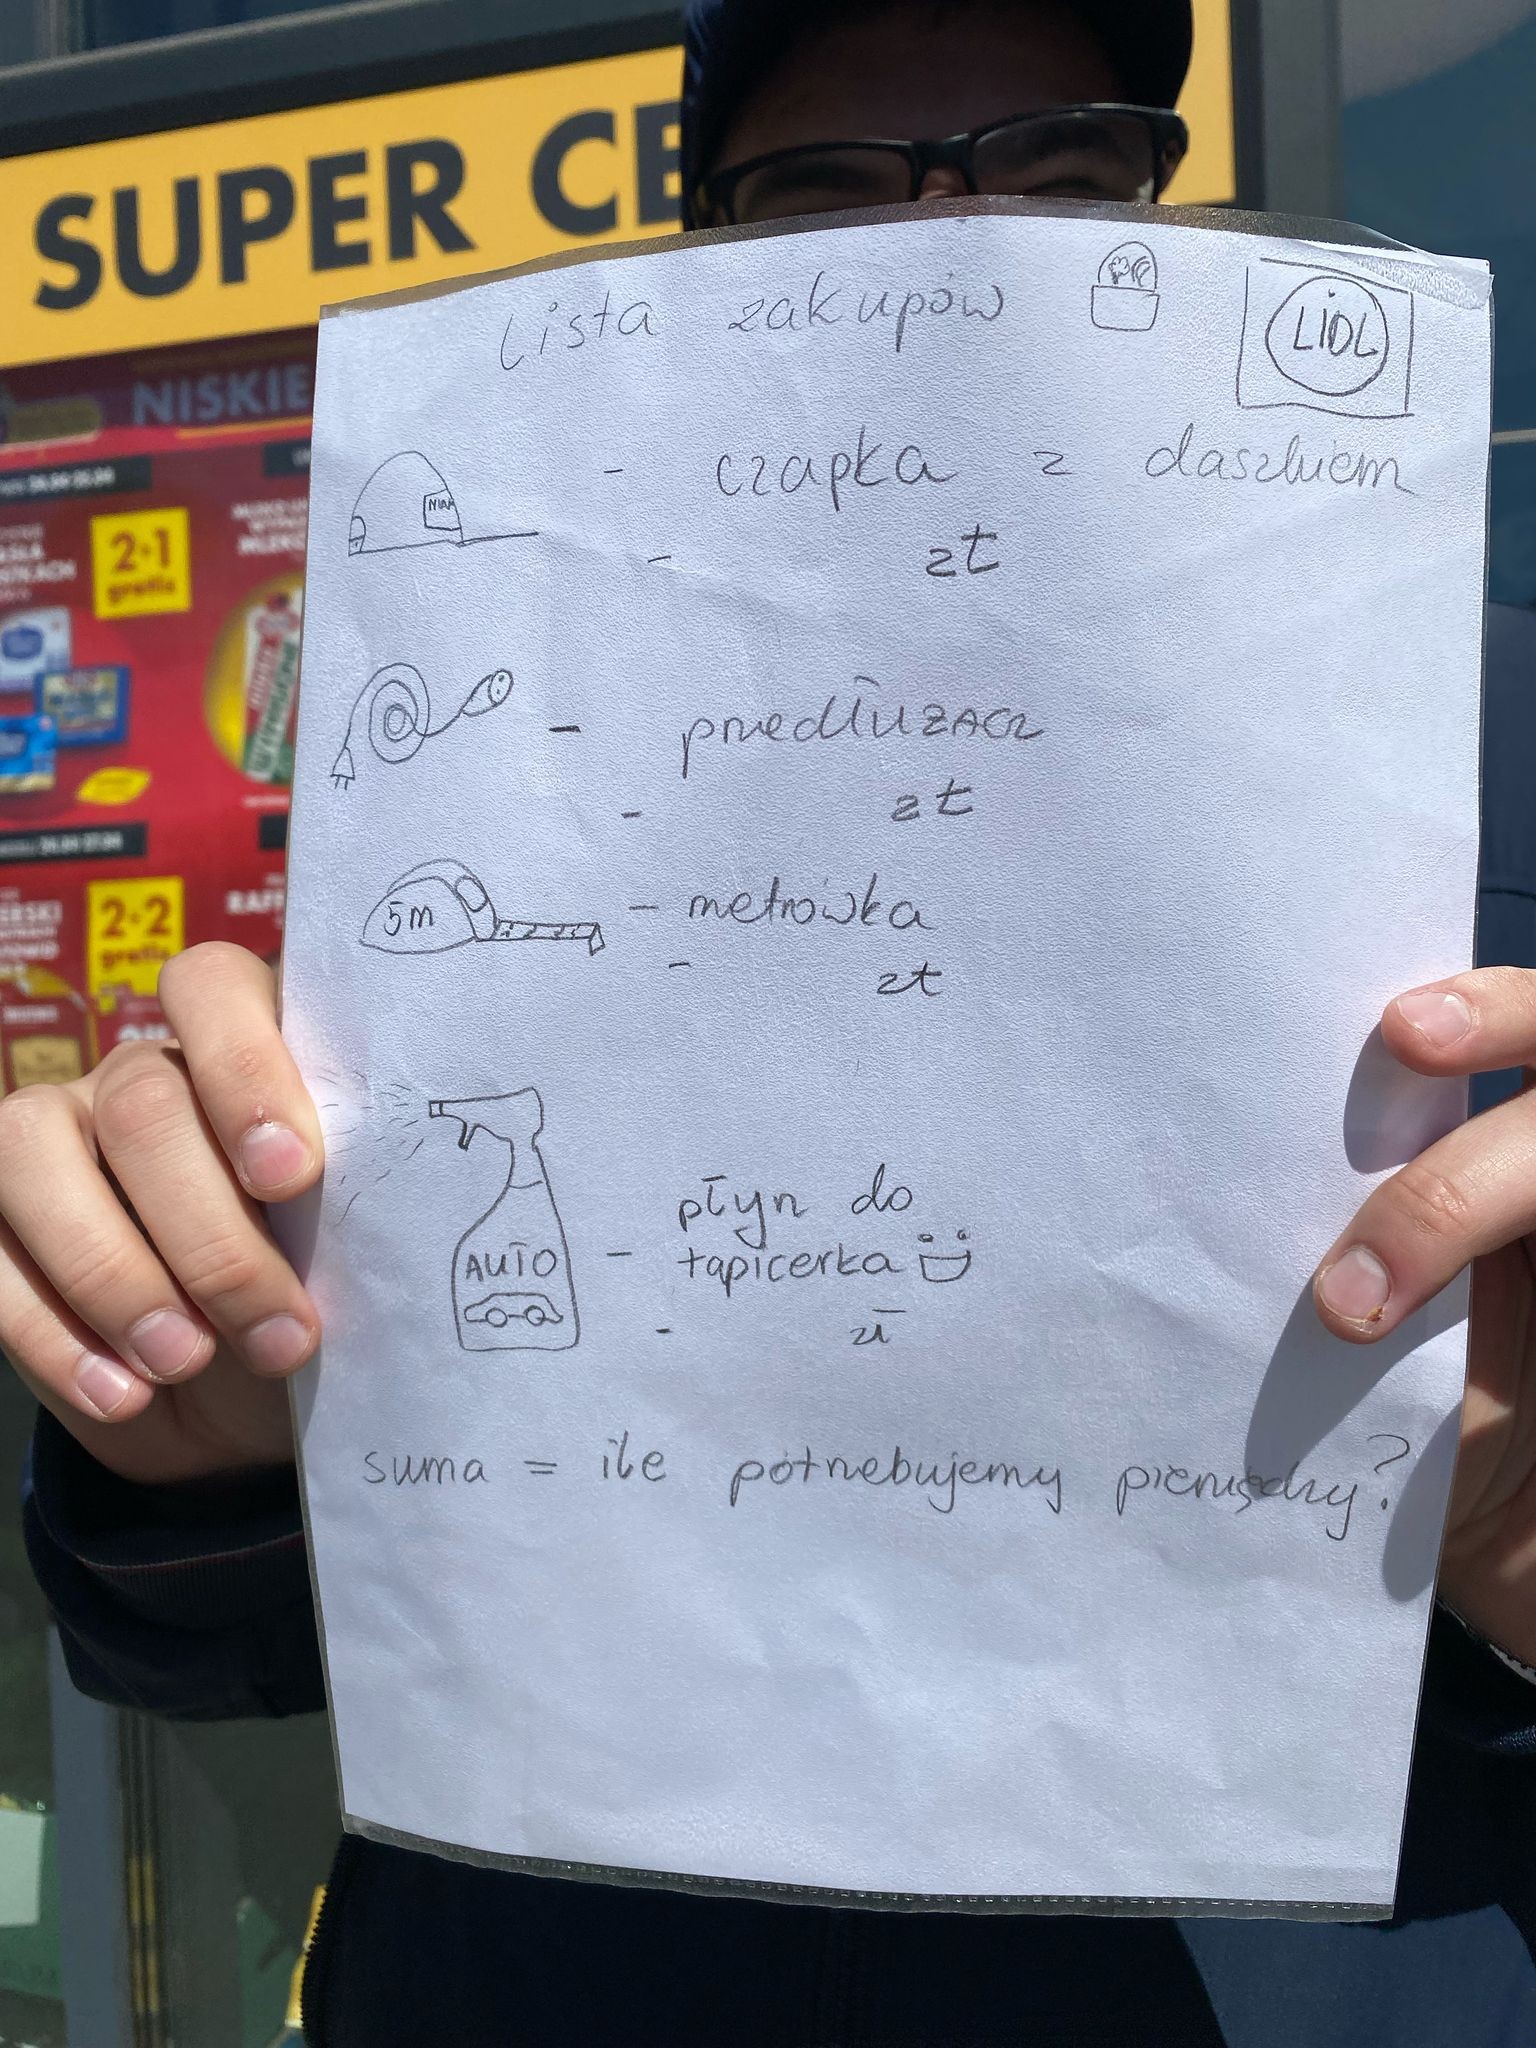 SUPER CE
NISKIE
2+1
gratis
2+2
gratis
Lista zakupów
LIDL
- czapka z daszkiem
- zł
- przedłużacz
- zł
5m
- metrówka
- zł
AUTO
- płyn do
tapicerka
- zł
suma = ile potrzebujemy pieniędzy?